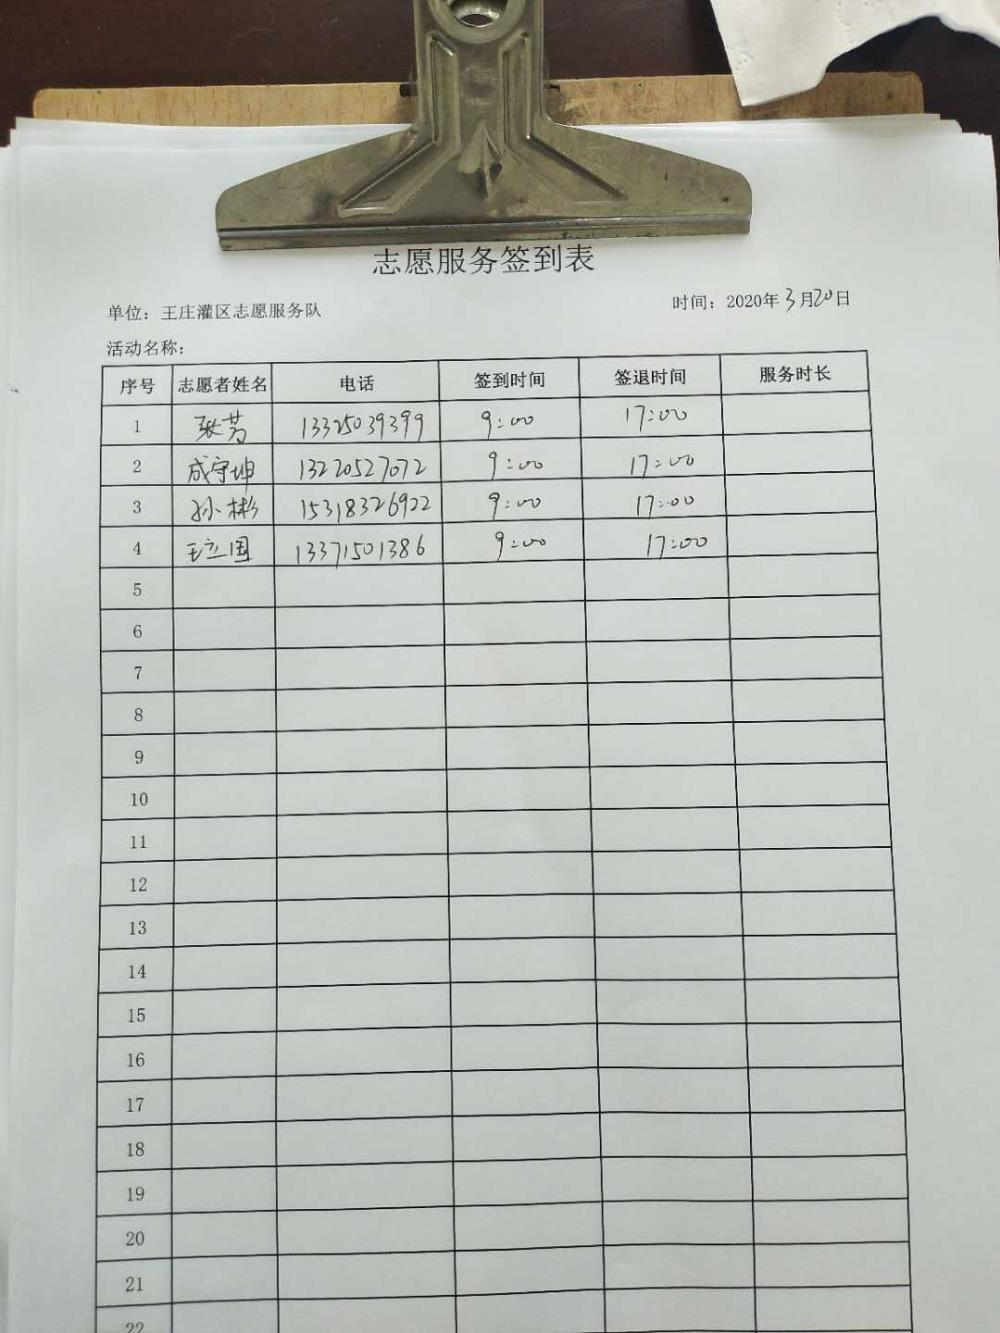 志愿服务签到表
单位：王庄灌区志愿服务队 时间：2020年3月20日
活动名称：
序号 志愿者姓名 电话 签到时间 签退时间 服务时长
1 张芳 13325039399 9:00 17:00
2 成守坤 13220527072 9:00 17:00
3 孙彬 15318326922 9:00 17:00
4 王立国 13371501386 9:00 17:00
5
6
7
8
9
10
11
12
13
14
15
16
17
18
19
20
21
22